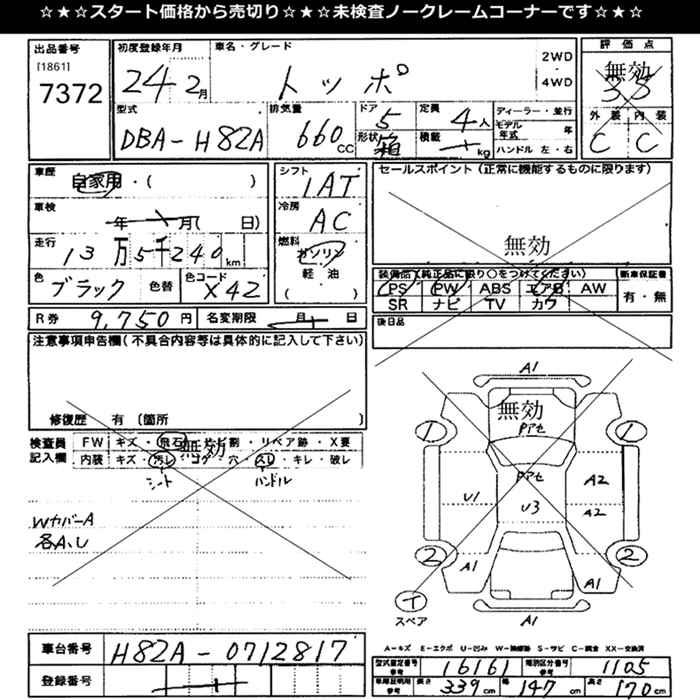 ☆★☆★スタート価格から売切り☆★☆★未検査ノークレームコーナーです☆★☆
出品番号
[1861]
7372
初度登録年月
24年2月
車名・グレード
トッポ
2WD
・
4WD
評価点
無効
3.5
外装 内装
C C
型式
DBA-H82A
排気量
660cc
ドア
5
形状
箱
定員
4人
積載
kg
ディーラー・並行
モデル年式 年
ハンドル 左・右
車歴
自家用・( )
シフト
IAT
セールスポイント(正常に機能するものに限ります)
無効
車検
年 月( 日)
冷房
AC
走行
13万5千240km
燃料
ガソリン
軽油
( )
色
ブラック
色替
色コード
X42
装備品(純正品に限り○をつけてください)
PS PW ABS エアB AW
SR ナビ TV カワ
新車保証書
有・無
R券 9,750円
名変期限 月 日
後日品
注意事項申告欄(不具合内容等は具体的に記入して下さい)
修復歴 有〔箇所 〕
検査員記入欄
FW キズ・飛石・ヒビ割・リペア跡・X要
内装 キズ・汚レ・コゲ・穴・スレ・キレ・破レ
無効
シート ハンドル
Wカバー A
各A、U
A1
無効
Pアセ
Pアセ
1 1
U1 U3 A2
A2
2 2
A1 A1
T
スペア
A1
車台番号 H82A-0712817
登録番号
A-キズ E-エクボ U-凹み W-補修跡 S-サビ C-腐食 XX-交換済
型式指定番号 参考 16161
類別区分番号 参考 1105
車庫証明用 参考 長さ 339cm 幅 147cm 高さ 170cm